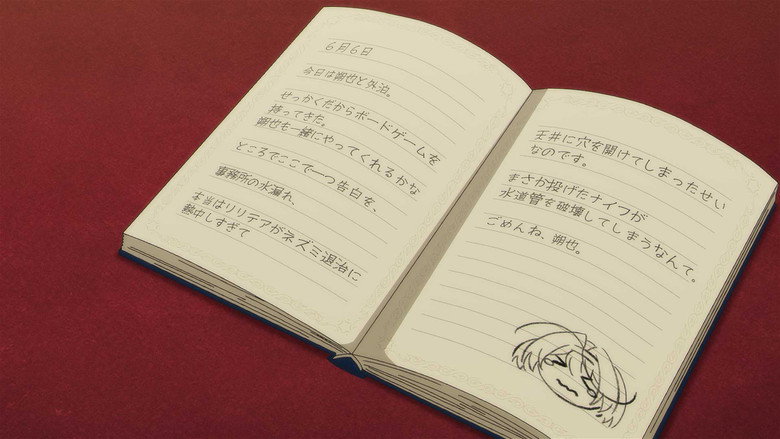 6月6日
今日は朔也と外泊。
せっかくだからボードゲームを
持ってきた。
朔也も一緒にやってくれるかな
ところでここで一つ告白を、
事務所の水漏れ、
本当はリリテアがネズミ退治に
熱中しすぎて
天井に穴を開けてしまったせい
なのです。
まさか投げたナイフが
水道管を破壊してしまうなんて。
ごめんね、朔也。